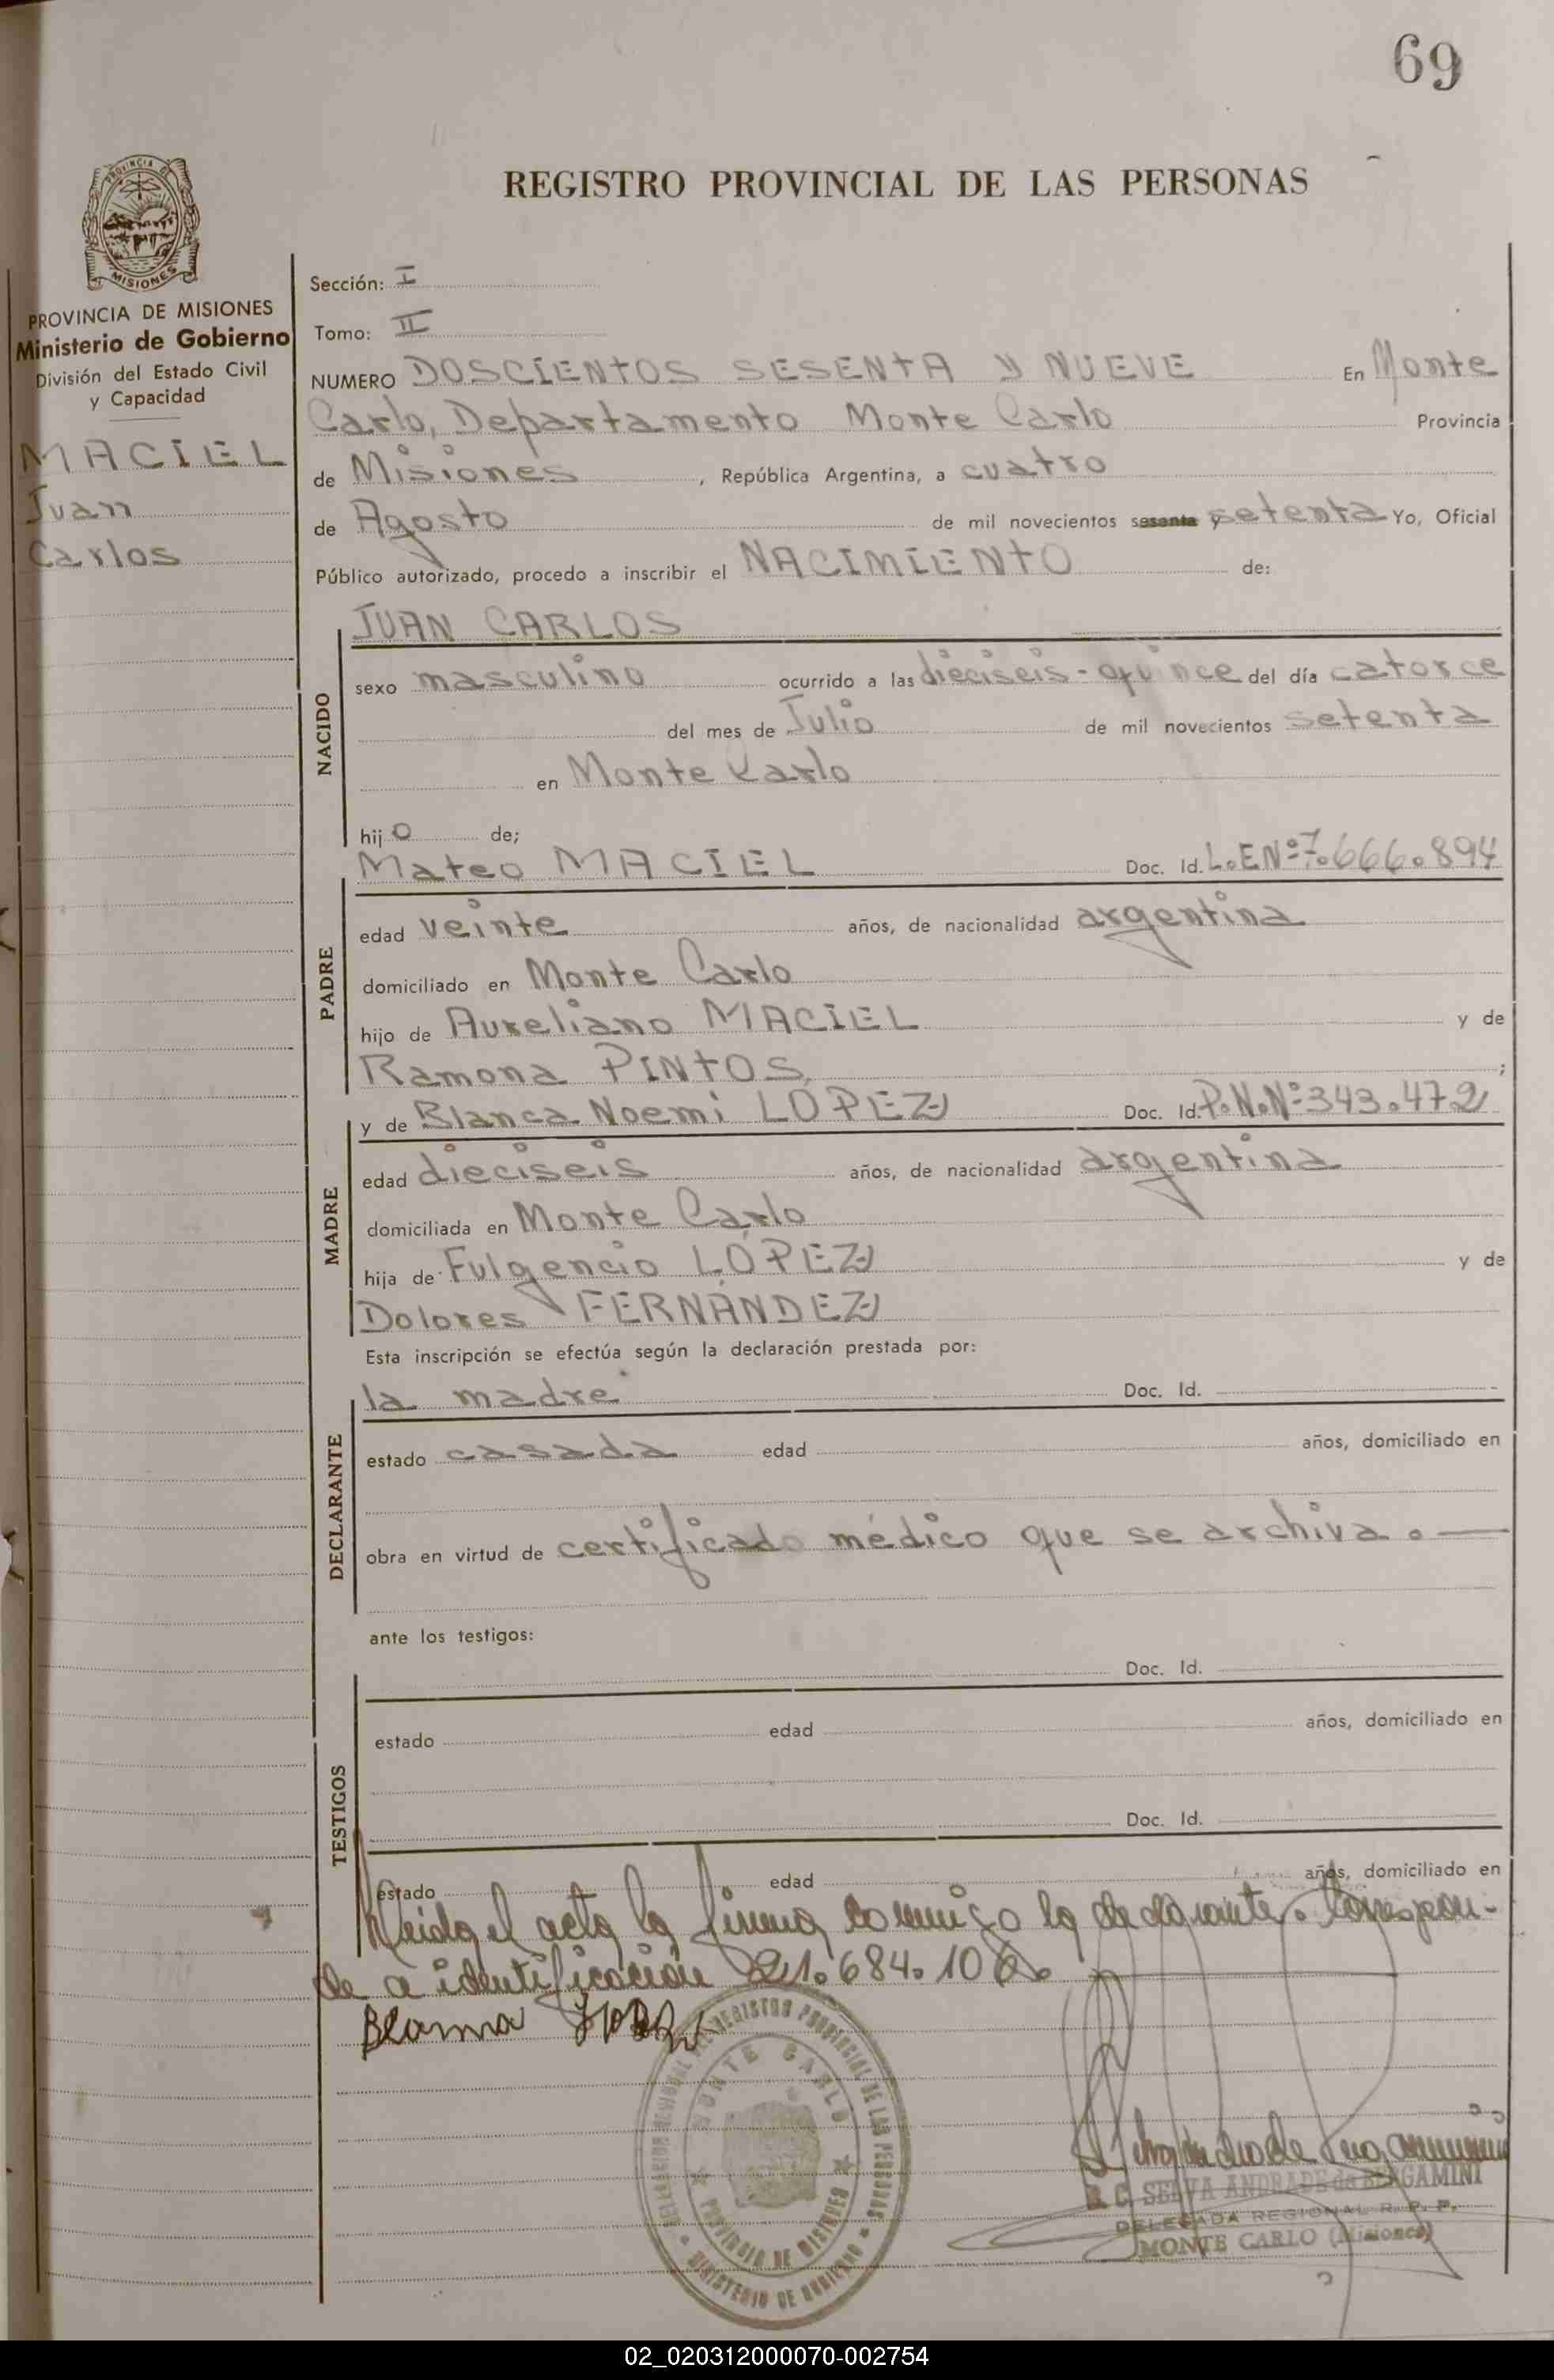 69
REGISTRO PROVINCIAL DE LAS PERSONAS
PROVINCIA DE MISIONES
PROVINCIA DE MISIONES
Ministerio de Gobierno
División del Estado Civil
y Capacidad
MACIEL
Juan
Carlos
Sección: I
Tomo: II
NUMERO DOSCIENTOS SESENTA Y NUEVE En Monte
Carlo, Departamento Monte Carlo Provincia
de Misiones, República Argentina, a cuatro
de Agosto de mil novecientos sesenta y setenta Yo, Oficial
Público autorizado, procedo a inscribir el NACIMIENTO de:
JUAN CARLOS
NACIDO
sexo masculino ocurrido a las dieciseis-quince del día catorce
del mes de Julio de mil novecientos setenta
en Monte Karlo
hijo de;
Mateo MACIEL Doc. Id. L.E Nº 7.666.894
PADRE
edad veinte años, de nacionalidad argentina
domiciliado en Monte Carlo
hijo de Aureliano MACIEL y de
Ramona PINTOS ;
y de Blanca Noemi LÓPEZ Doc. Id. P.N.Nº 343.472
MADRE
edad dieciseis años, de nacionalidad argentina
domiciliada en Monte Carlo
hija de Fulgencio LÓPEZ y de
Dolores FERNÁNDEZ
Esta inscripción se efectúa según la declaración prestada por:
la madre Doc. Id.
DECLARANTE
estado casada edad años, domiciliado en
obra en virtud de certificado médico que se archiva.—
ante los testigos:
Doc. Id.
TESTIGOS
estado edad años, domiciliado en
Doc. Id.
estado edad años, domiciliado en
Leida el acta la firma conmigo la declarante. Correspon-
de a identificación 21.684.106.
Blanca Lopez
DELEGACION REGIONAL DEL REGISTRO PROVINCIAL DE LAS PERSONAS
MONTE CARLO
PROVINCIA DE MISIONES
MINISTERIO DE GOBIERNO
R. C. SELVA ANDRADE de BERGAMINI
DELEGADA REGIONAL R. P. P.
MONTE CARLO (Misiones)
02_020312000070-002754